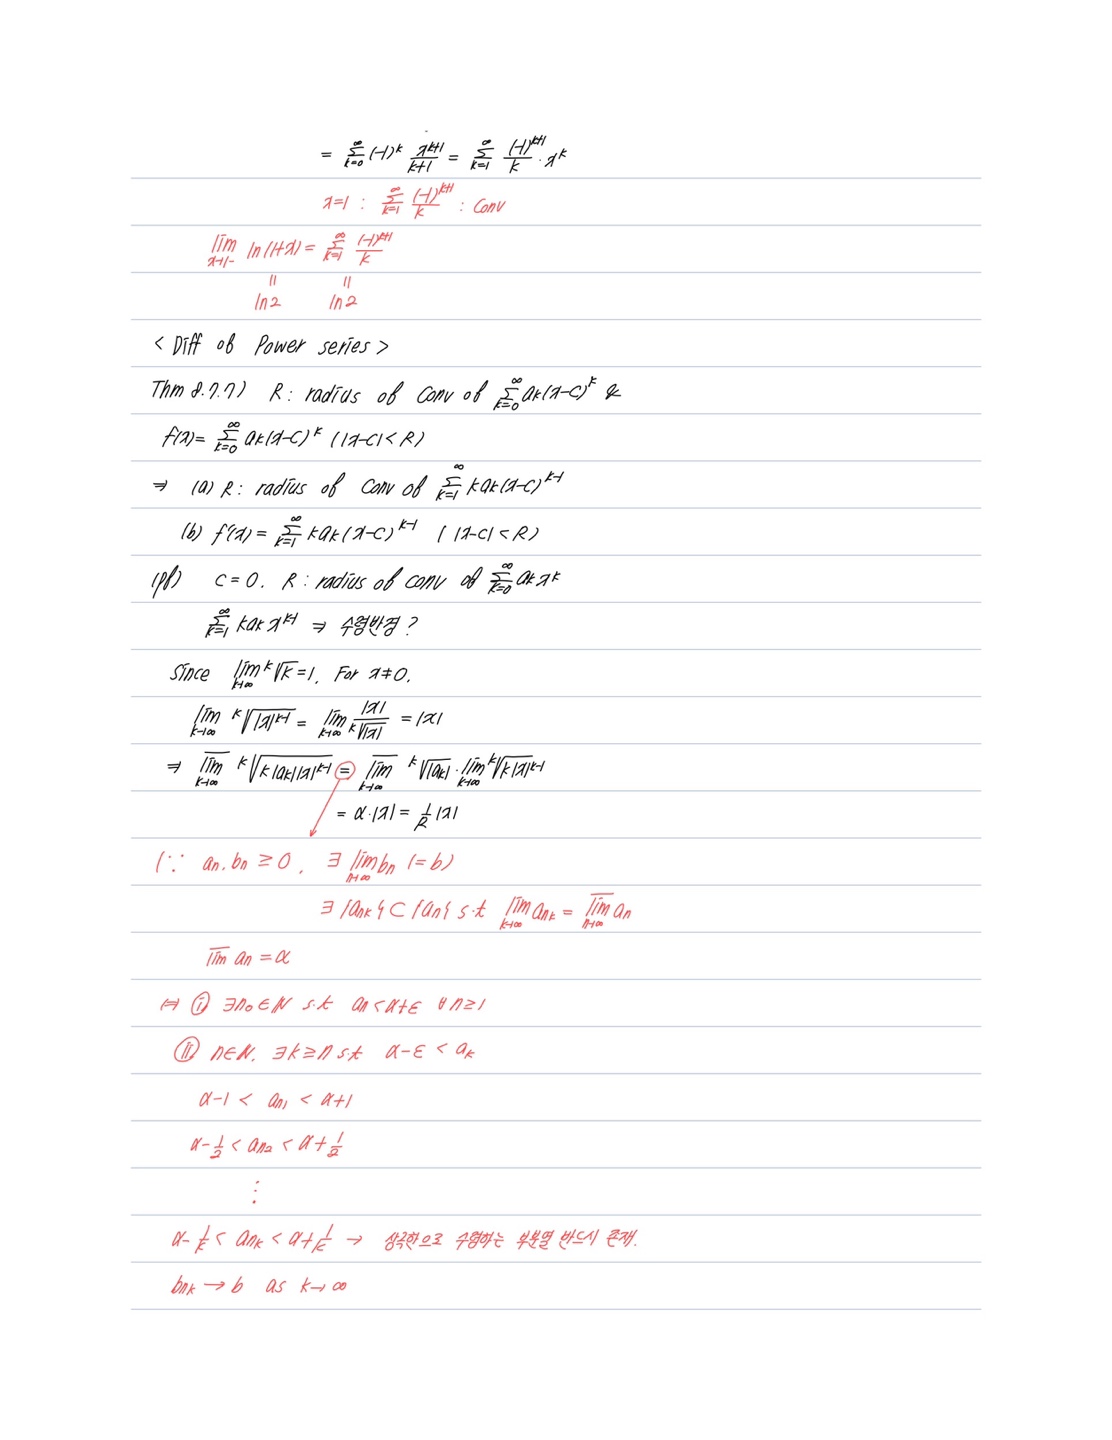 = ∑_{k=0}^{∞} (-1)^k x^{k+1}/(k+1) = ∑_{k=1}^{∞} (-1)^{k+1}/k · x^k
x=1 : ∑_{k=1}^{∞} (-1)^{k+1}/k : Conv
lim_{x→1-} ln(1+x) = ∑_{k=1}^{∞} (-1)^{k+1}/k
|| ||
ln2 ln2
< Diff of Power series >
Thm 8.7.7) R : radius of Conv of ∑_{k=0}^{∞} a_k(x-c)^k &
f(x) = ∑_{k=0}^{∞} a_k(x-c)^k (|x-c| < R)
⇒ (a) R : radius of Conv of ∑_{k=1}^{∞} k a_k(x-c)^{k-1}
(b) f'(x) = ∑_{k=1}^{∞} k a_k (x-c)^{k-1} (|x-c| < R)
(pf) c = 0. R : radius of conv of ∑_{k=0}^{∞} a_k x^k
∑_{k=1}^{∞} k a_k x^{k-1} ⇒ 수렴반경?
Since lim_{k→∞} ᵏ√k = 1. For x≠0,
lim_{k→∞} ᵏ√(|x|^{k-1}) = lim_{k→∞} |x|/ᵏ√|x| = |x|
⇒ l̅i̅m̅_{k→∞} ᵏ√(k|a_k||x|^{k-1}) = l̅i̅m̅_{k→∞} ᵏ√|a_k| · lim_{k→∞} ᵏ√(k|x|^{k-1})
= α·|x| = 1/R |x|
(∵ a_n, b_n ≥ 0, ∃ lim_{n→∞} b_n (= b)
∃ {a_{n_k}} ⊂ {a_n} s.t lim_{k→∞} a_{n_k} = l̅i̅m̅_{n→∞} a_n
l̅i̅m̅ a_n = α
⇔ ⓘ ∃n₀∈ℕ s.t a_n < α+ε ∀n≥1
ⓘⓘ n∈ℕ, ∃k≥n s.t α-ε < a_k
α-1 < a_{n_1} < α+1
α-1/2 < a_{n_2} < α+1/2
⋮
α-1/k < a_{n_k} < α+1/k → 상극한으로 수렴하는 부분열 반드시 존재.
b_{n_k} → b as k→∞